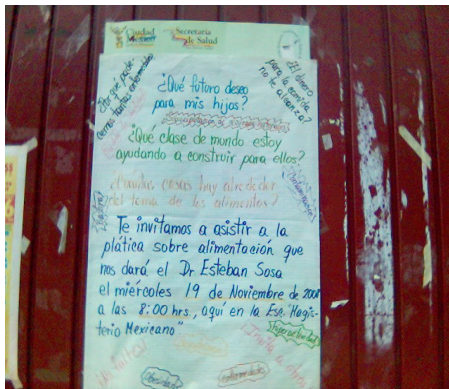 Ciudad
Secretaría
de Salud
¿Por qué padecemos tantas enfermedades?
¿El dinero
para la comida
no te alcanza?
¿Qué futuro deseo
para mis hijos?
¿Que clase de mundo estoy
ayudando a construir para ellos?
¿Cuantas cosas hay alrededor
del tema de los alimentos?
Te invitamos a asistir a la
plática sobre alimentación que
nos dará el Dr Esteban Sosa
el miércoles 19 de Noviembre de 2008
a las 8:00 hrs., aquí en la Esn. "Magis-
terio Mexicano"
Hiperactividad
Invita a otros
¡No faltes!
Obesidad